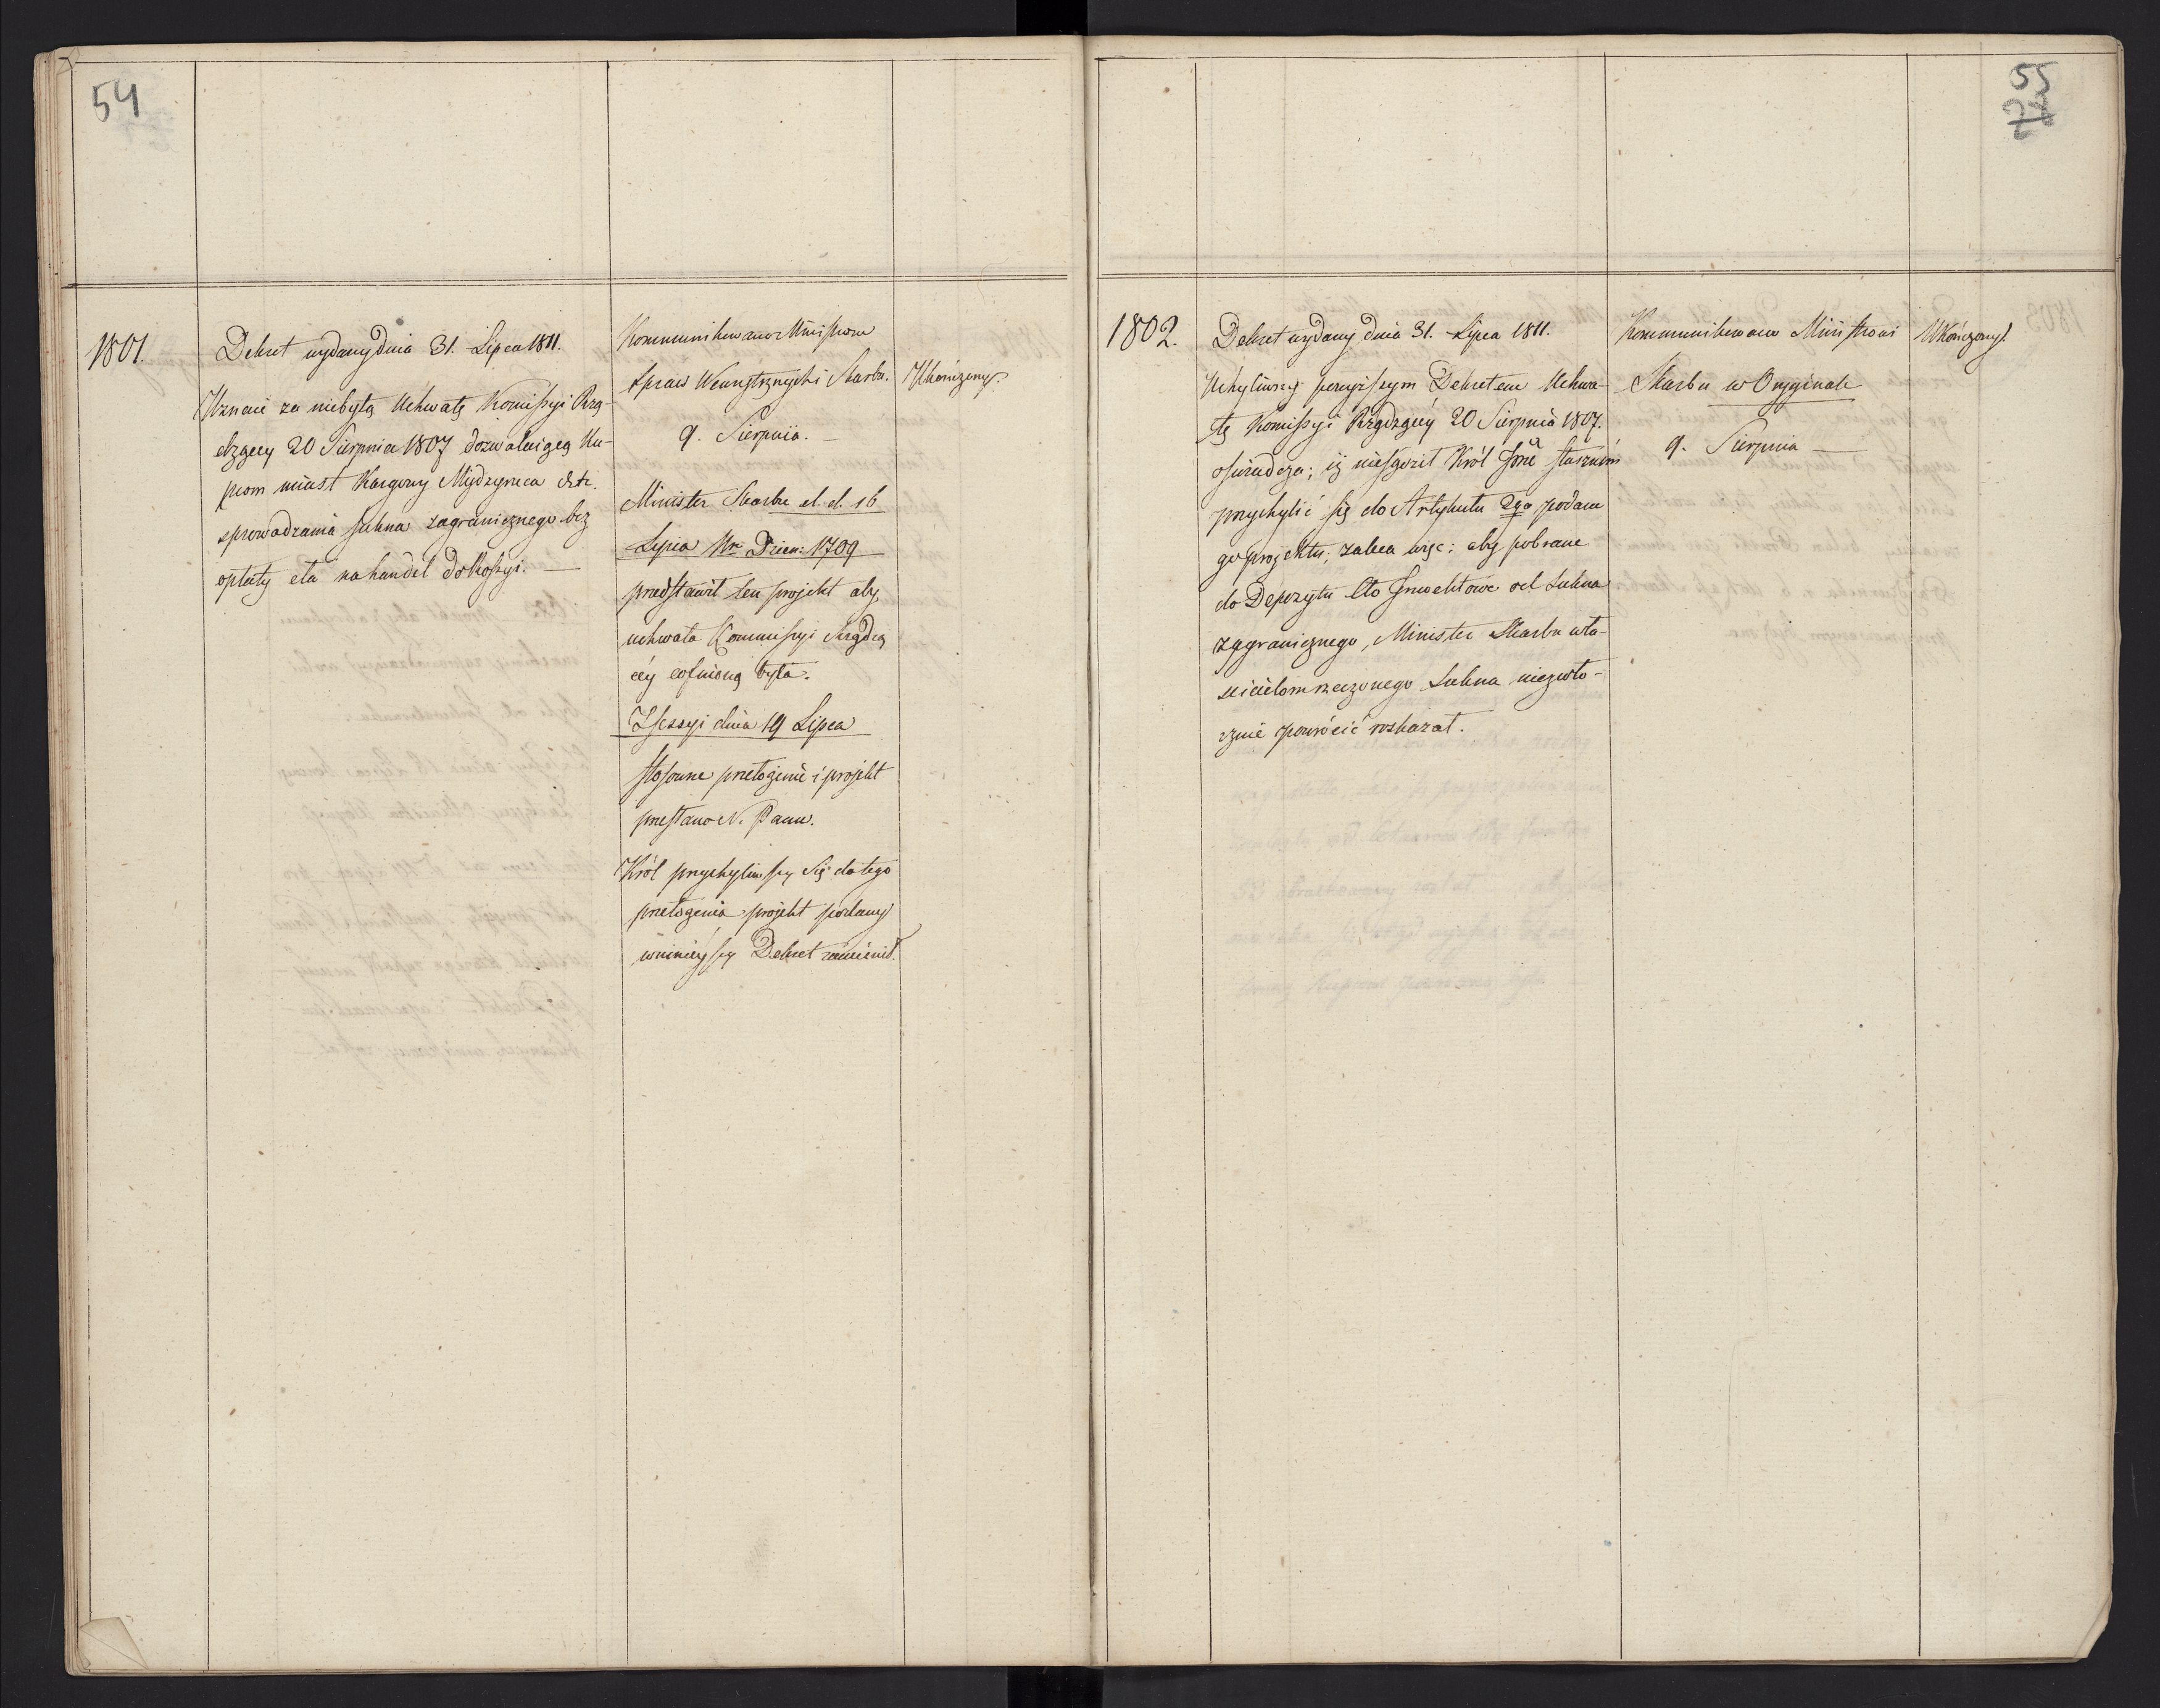 54
1801.
Dekret wydany dnia 31. Lipca 1811.
Uznanie za niebyłą Uchwałę Komissyi Rzą-
dzącey 20 Sierpnia 1807 dozwalaiącą Ku-
pcom miast Kargowy Międzyrzeca &tc.
sprowadzania sukna zagranicznego bez
opłaty cła na handel do Rossyi. —
Kommunikowano Ministrom
Spraw Wewnętrznych i Skarbu.
9. Sierpnia. —
Minister Skarbu d. d. 16
Lipca Nr Dzien: 1709
przedstawił ten projekt aby
uchwała Kommissyi Rządzą
céy cofnioną była.
Z Sessyi dnia 19 Lipca
stosowne przełożenie i projekt
przesłano N. Panu.
Król przychyliwszy się do tego
przełożenia projekt podany
w ninieyszy Dekret zamienił.
Ukończony.
55
1802.
Dekret wydany dnia 31. Lipca 1811.
Uchyliwszy powyższym Dekretem Uchwa-
łę Komissyi Rządzącéy 20 Sierpnia 1807.
oświadcza; iż nie sądził Król Jmć słusznem
przychylić się do Artykułu 2go podane
go projektu; zaleca więc: aby pobrane
do Depozytu Cło od Sukna
zagranicznego, Minister Skarbu wła-
ścicielom rzeczonego Sukna niezwło-
cznie powrócić rozkazał.
Kommunikowano Ministrowi
Skarbu w Oryginale
9. Sierpnia —
Ukończony.